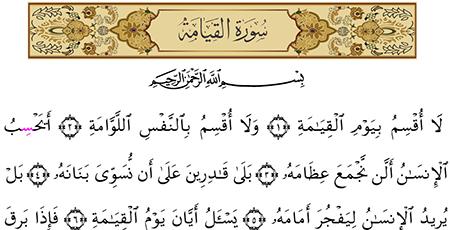 سُورَةُ القِيَامَةِ
بِسْمِ اللَّهِ الرَّحْمَٰنِ الرَّحِيمِ
لَا أُقْسِمُ بِيَوْمِ الْقِيَٰمَةِ ﴿١﴾ وَلَا أُقْسِمُ بِالنَّفْسِ اللَّوَّامَةِ ﴿٢﴾ أَيَحْسِبُ
الْإِنسَٰنُ أَلَّن نَّجْمَعَ عِظَامَهُۥ ﴿٣﴾ بَلَىٰ قَٰدِرِينَ عَلَىٰ أَن نُّسَوِّىَ بَنَانَهُۥ ﴿٤﴾ بَلْ
يُرِيدُ الْإِنسَٰنُ لِيَفْجُرَ أَمَامَهُۥ ﴿٥﴾ يَسْـَٔلُ أَيَّانَ يَوْمُ الْقِيَٰمَةِ ﴿٦﴾ فَإِذَا بَرِقَ